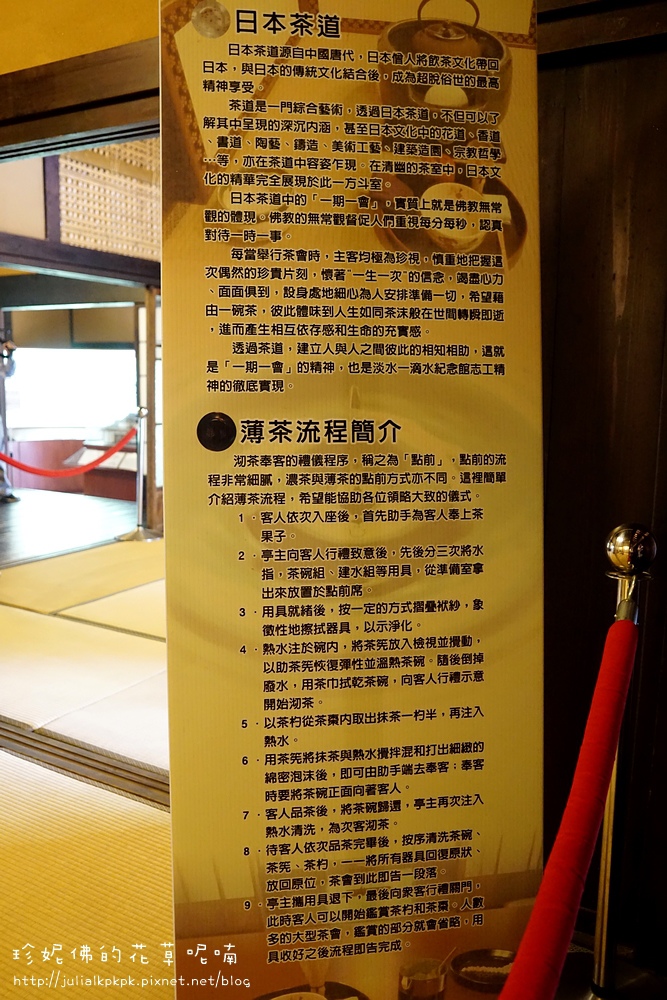 日本茶道
日本茶道源自中國唐代，日本僧人將飲茶文化帶回
日本，與日本的傳統文化結合後，成為超脫俗世的最高
精神享受。
茶道是一門綜合藝術，透過日本茶道，不但可以了
解其中呈現的深沉內涵，甚至日本文化中的花道、香道
、書道、陶藝、鑄造、美術工藝、建築造園、宗教哲學
…等，亦在茶道中容姿乍現。在清幽的茶室中，日本文
化的精華完全展現於此一方斗室。
日本茶道中的「一期一會」，實質上就是佛教無常
觀的體現。佛教的無常觀督促人們重視每分每秒，認真
對待一時一事。
每當舉行茶會時，主客均極為珍視，慎重地把握這
次偶然的珍貴片刻，懷著"一生一次"的信念，竭盡心力
、面面俱到，設身處地細心為人安排準備一切，希望藉
由一碗茶，彼此體味到人生如同茶沫般在世間轉瞬即逝
，進而產生相互依存感和生命的充實感。
透過茶道，建立人與人之間彼此的相知相助，這就
是「一期一會」的精神，也是淡水一滴水紀念館志工精
神的徹底實現。
薄茶流程簡介
沏茶奉客的禮儀程序，稱之為「點前」，點前的流
程非常細膩，濃茶與薄茶的點前方式亦不同。這裡簡單
介紹薄茶流程，希望能協助各位領略大致的儀式。
1．客人依次入座後，首先助手為客人奉上茶
果子。
2．亭主向客人行禮致意後，先後分三次將水
指，茶碗組、建水組等用具，從準備室拿
出來放置於點前席。
3．用具就緒後，按一定的方式摺疊袱紗，象
徵性地擦拭器具，以示淨化。
4．熱水注於碗內，將茶筅放入檢視並攪動，
以助茶筅恢復彈性並溫熱茶碗。隨後倒掉
廢水，用茶巾拭乾茶碗，向客人行禮示意
開始沏茶。
5．以茶杓從茶棗內取出抹茶一杓半，再注入
熱水。
6．用茶筅將抹茶與熱水攪拌混和打出細緻的
綿密泡沫後，即可由助手端去奉客；奉客
時要將茶碗正面向著客人。
7．客人品茶後，將茶碗歸還，亭主再次注入
熱水清洗，為次客沏茶。
8．待客人依次品茶完畢後，按序清洗茶碗、
茶筅、茶杓，一一將所有器具回復原狀、
放回原位，茶會到此即告一段落。
9．亭主攜用具退下，最後向眾客行禮關門，
此時客人可以開始鑑賞茶杓和茶棗。人數
多的大型茶會，鑑賞的部分就會省略，用
具收好之後流程即告完成。
珍妮佛的花草呢喃
http://julialkpkpk.pixnet.net/blog